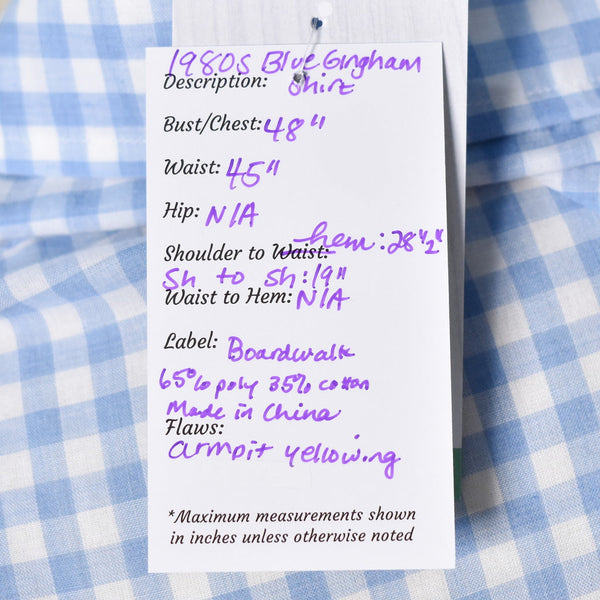 1980s Blue Gingham
Description: Shirt
Bust/Chest: 48"
Waist: 45"
Hip: N/A
Shoulder to Waist: hem: 28 1/2"
Sh to Sh: 19"
Waist to Hem: N/A
Label: Boardwalk
65% poly 35% cotton
Made in China
Flaws:
armpit yellowing
*Maximum measurements shown
in inches unless otherwise noted